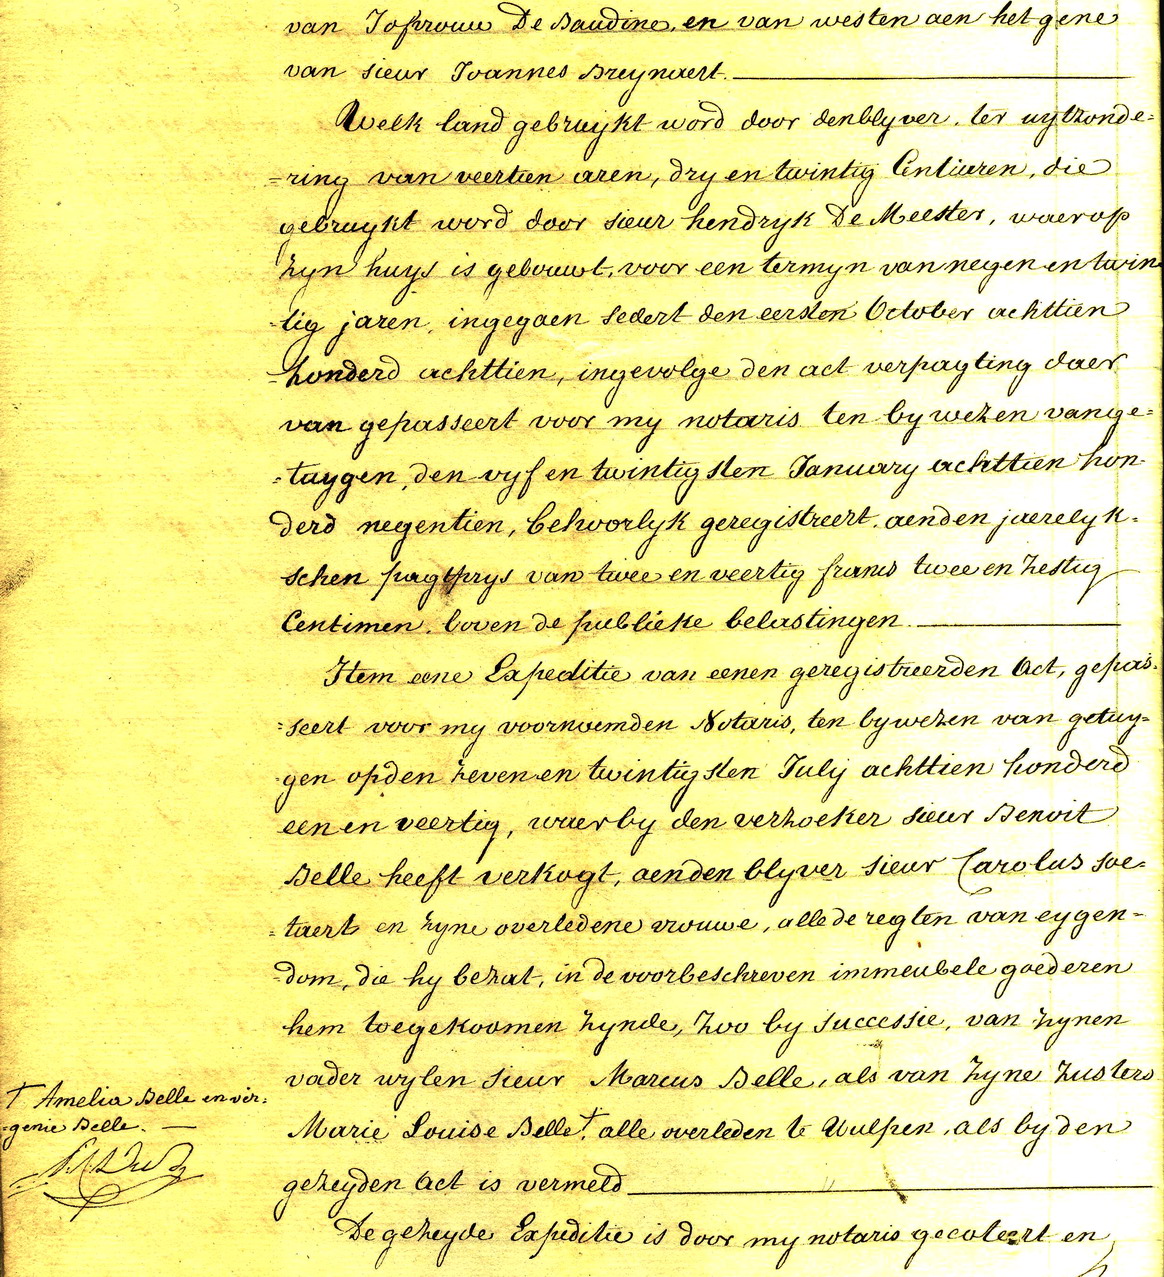 van Jofrouw De Baudine, en van westen aen het gene
van sieur Joannes Breynaert.
Welk land gebruykt word door den blyver, ter uytzonde=
=ring van veertien aren, dry en twintig Centiaren, die
gebruykt word door sieur hendryk De Meester, waerop
zyn huys is gebouwt, voor een termyn van negen en twin
=tig jaren, ingegaen sedert den eersten October achttien
=honderd achttien, ingevolge den act verpagting daer
van gepasseert voor my notaris ten bywezen van ge=
=tuygen, den vyf en twintigsten January achttien hon=
derd negentien, behoorlyk geregistreert, aenden jaerelyk=
schen pagtprys van twee en veertig francs twee en zestig
Centimen, boven de publieke belastingen.
Item eene Expeditie van eenen geregistreerden Act, gepas=
=seert voor my voornoemden Notaris, ten bywezen van getuy=
=gen op den zeven en twintigsten July achttien honderd
een en veertig, waer by den verzoeker sieur Benoit
Belle heeft verkogt, aenden blyver sieur Carolus Soe=
=taert en zyne overledene vrouwe, alle de regten van eygen=
=dom, die hy bezat, in de voorbeschreven immeubele goederen
hem toegekoomen zynde, zoo by successie, van zynen
vader wylen sieur Marcus Belle, als van zyne zusters
† Amelia Belle en vir=
=genie Belle.
Marie Louise Belle †, alle overleden te Wulpen, als by den
gezeyden Act is vermeld
De gezeyde Expeditie is door my notaris gecoteert en